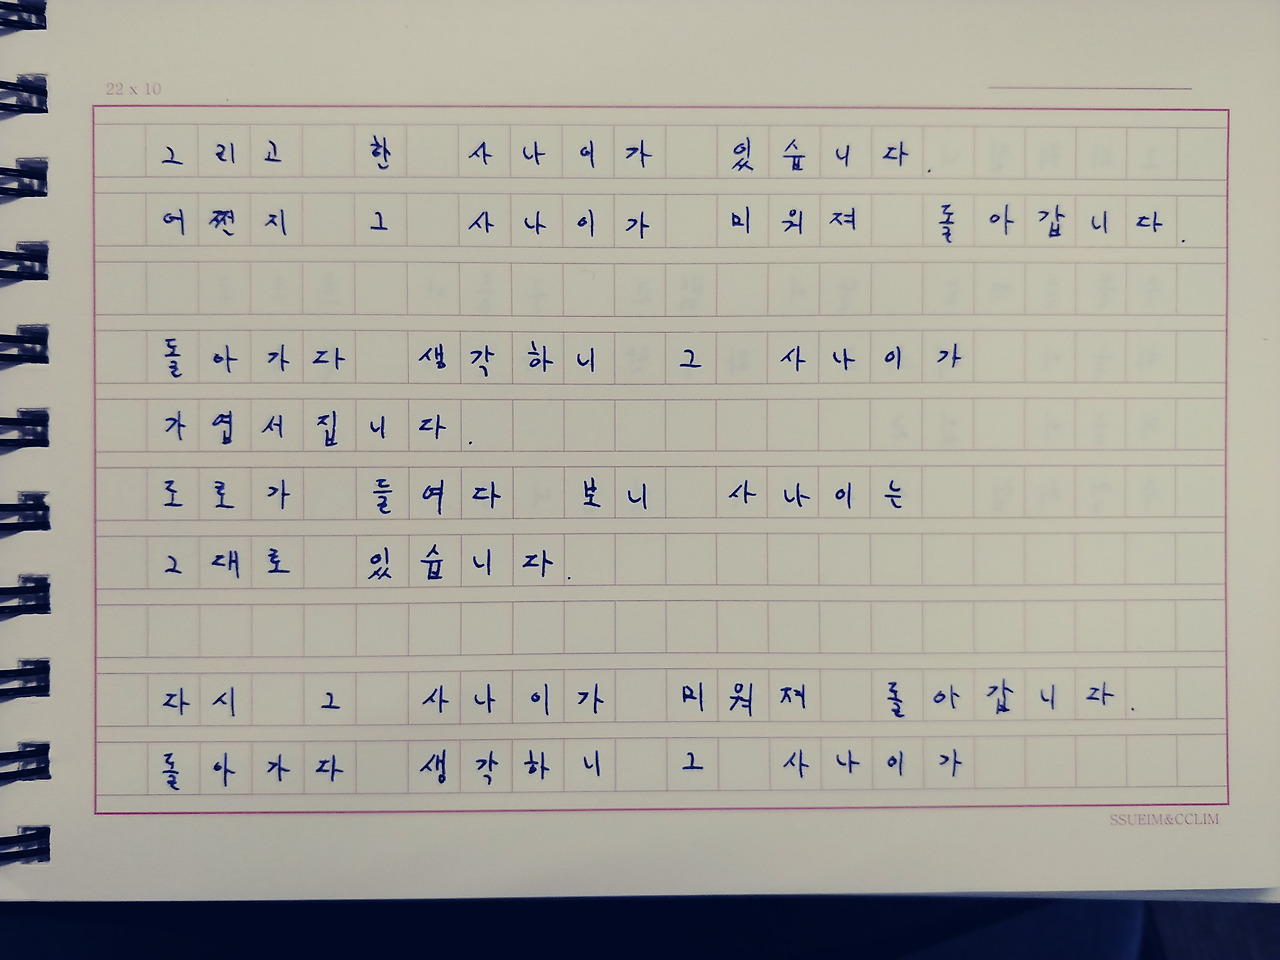 22 x 10
그리고 한 사나이가 있습니다.
어쩐지 그 사나이가 미워져 돌아갑니다.
돌아가다 생각하니 그 사나이가
가엽서집니다.
도로가 들여다 보니 사나이는
그대로 있습니다.
다시 그 사나이가 미워져 돌아갑니다.
돌아가다 생각하니 그 사나이가
SSUEIM&CCLIM